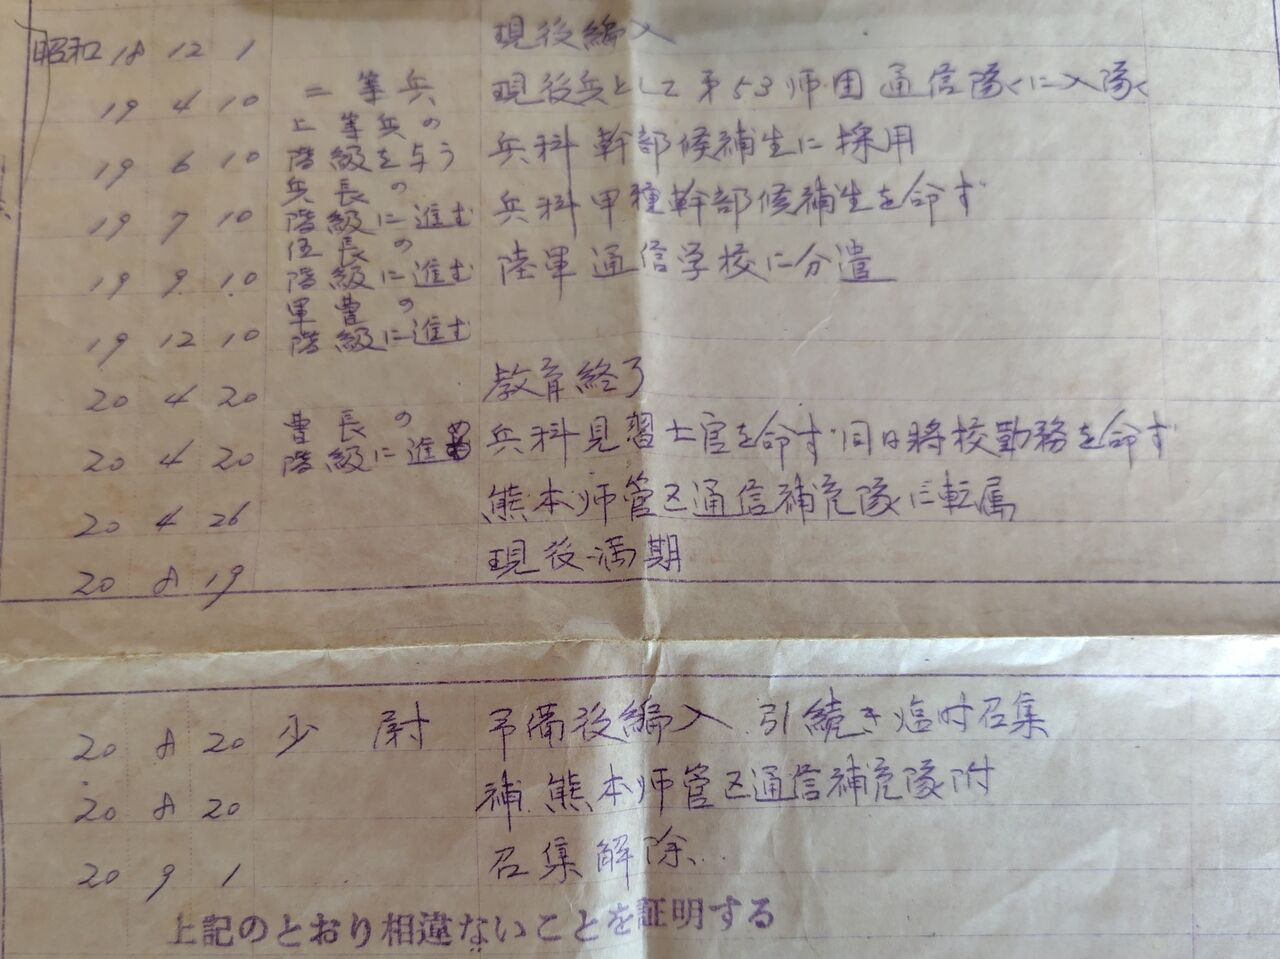 昭和 18 12 1 現役編入
19 4 10 二等兵 現役兵として第53师团通信隊に入隊
19 6 10 上等兵の階級を与う 兵科幹部候補生に採用
19 7 10 兵長の階級に進む 兵科甲種幹部候補生を命ず
19 9 10 伍長の階級に進む 陸軍通信学校に分遣
19 12 10 軍曹の階級に進む
20 4 20 教育終了
20 4 20 曹長の階級に進む 兵科見習士官を命ず 同日將校勤務を命ず
20 4 26 熊本师管区通信補充隊に転属
20 8 19 現役満期
20 8 20 少尉 予備役編入 引続き臨时召集
20 8 20 補熊本师管区通信補充隊附
20 9 1 召集解除
上記のとおり相違ないことを証明する